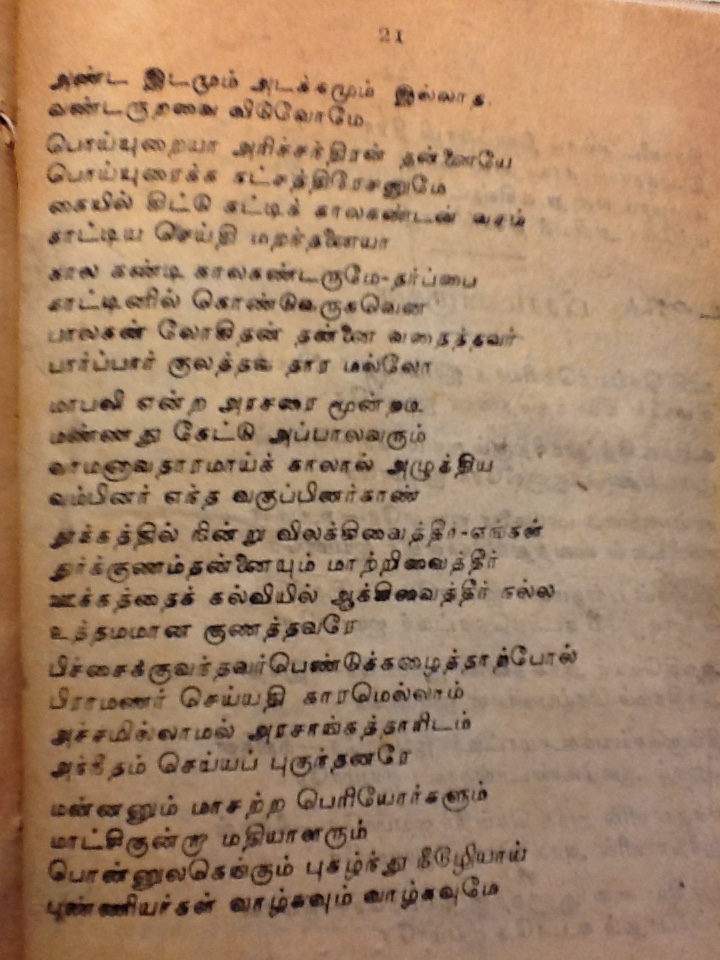 21
அண்ட இடமும் அடக்கமும் இல்லாத
வண்டருறவை விடுவோமே
பொய்யுறையா அரிச்சந்திரன் தன்னையே
பொய்யுரைக்க கட்சத்திரேசனுமே
கையில் கிட்டு கட்டிக் காலகண்டன் வசம்
காட்டிய செய்தி மறந்தனையா
கால கண்டி காலகண்டருமே-தர்ப்பை
காட்டினில் கொண்டுவருகவென
பாலகன் லோகிதன் தன்னை வதைத்தவர்
பார்ப்பார் குலத்தவ தார மல்லோ
மாபலி என்ற அரசரை மூன்றடி
மண்ணது கேட்டு அப்பாலவரும்
வாமனாவதாரமாய்க் காலால் அழுத்திய
வம்பினர் எந்த வகுப்பினர்காண்
தூக்கத்தில் நின்று விலக்கிவைத்தீர்-எங்கள்
துர்க்குணம்தன்னையும் மாற்றிவைத்தீர்
ஊக்கத்தைக் கல்வியில் ஆக்கிவைத்தீர் நல்ல
உத்தமமான குணத்தவரே
பிச்சைக்குவந்தவர்பெண்டுக்கழைத்தாற்போல்
பிராமணர் செய்யதி காரமெல்லாம்
அச்சமில்லாமல் அரசாங்கத்தாரிடம்
அங்கிதம் செய்யப் புகுந்தனரே
மன்னனும் மாசற்ற பெரியோர்களும்
மாட்சிகுன்றா மதியாளரும்
பொன்னுலகெங்கும் புகழ்ந்து நீடூழியாய்
புண்ணியர்கள் வாழ்கவும் வாழ்கவுமே